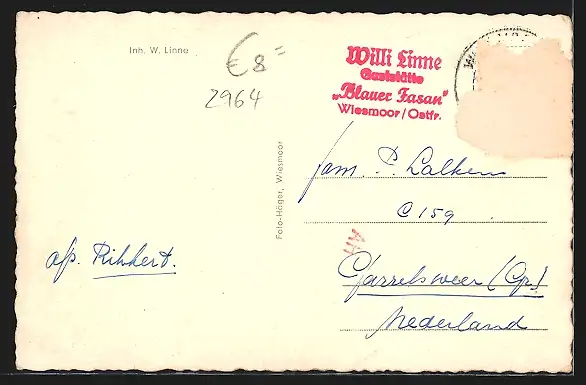 Inh. W. Linne
€ 8 =
2964
Willi Linne
Gaststätte
„Blauer Fasan"
Wiesmoor/Ostfr.
Foto-Höger, Wiesmoor
fam. P. Lalkens
C 159
Garrelsweer (Gr.)
Nederland
afz. Rikkert.